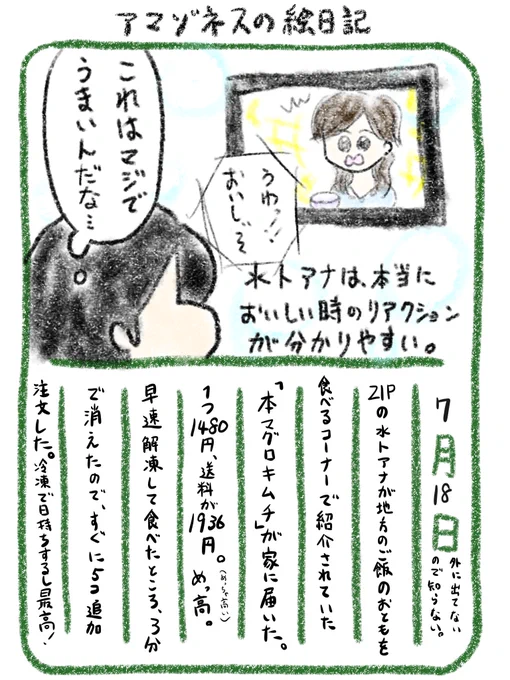 アマゾネスの絵日記
これはマジで
うまいんだな…
うわっ!!
おいしぃぞ
水トアナは、本当に
おいしい時のリアクション
が分かりやすい。
7月18日
外に出てない
ので知らない。
ZIPの水トアナが地方のご飯のおともを
食べるコーナーで紹介されていた
「本マグロキムチ」が家に届いた。
1つ1480円、送料が1936円。めっ高。
(めっちゃ高い)
早速解凍して食べたところ、3分
で消えたので、すぐに5コ追加
注文した。冷凍で日持ちするし最高!